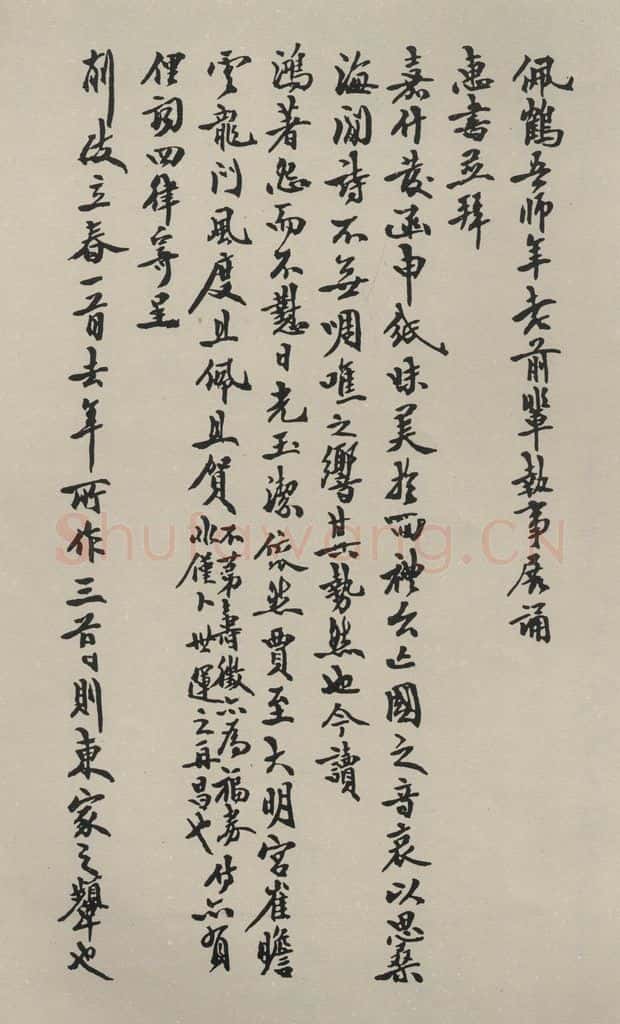 佩鶴吾師年老前輩執事展誦
惠書並拜
嘉什發函申紙昧美於西禮公亡國之音哀以思桑
海間詩不無啁噍之響其勢然也今讀
鴻著怨而不懟日光玉潔依然賈至大明宮崔瞻
雲龍門風度且佩且賀不第壽徵亦為福券
非僅卜世運之再昌也侍亦有
俚詞四律寄呈
削政立春一首去年所作三首則東家之顰也
Shufawang.CN